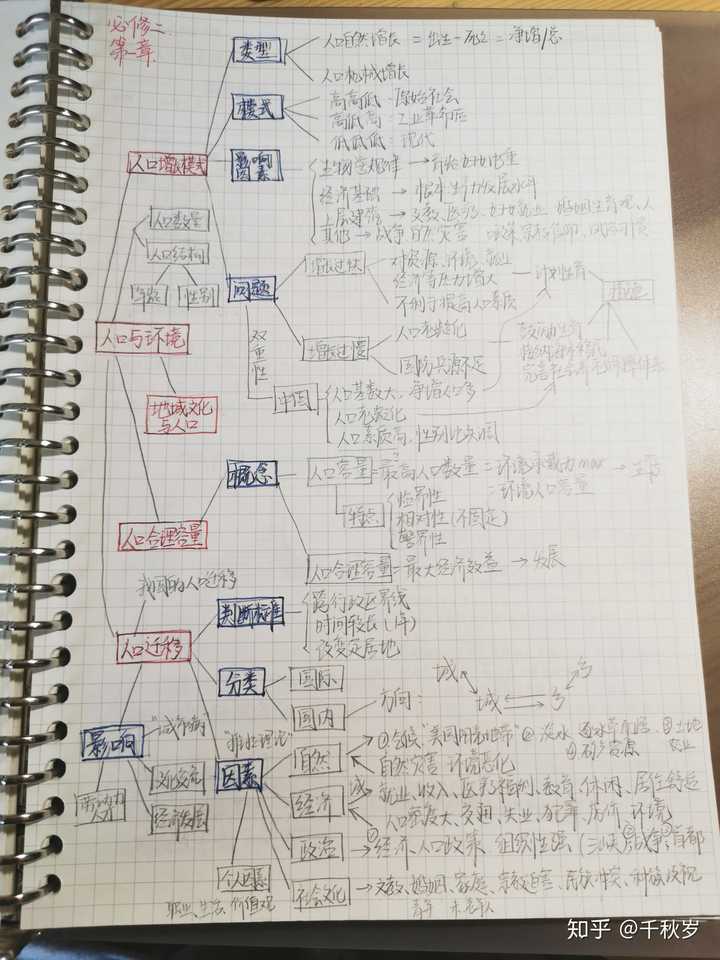 必修二
第一章
类型
人口自然增长 = 出生-死亡 = 净增/总
人口机械增长
模式
高高低:原始社会
高低高:工业革命后
低低低:现代
人口增长模式
影响因素
生物学规律
经济基础 → 根本:生产力发展水平
上层建筑 → 文教、医疗、妇女就业、婚姻生育观、人口
其他 → 战争 自然灾害 风俗习惯
人口数量
人口结构
年龄
性别
问题
增长过快
对资源、环境、就业
经济等压力增大
不利于提高人口素质
计划生育
措施
增长过慢
人口老龄化
国防兵源不足
鼓励生育
双重性
中国
人口基数大,净增人口多
人口老龄化
人口素质高,性别比失调
人口与环境
地域文化
与人口
概念
人口容量=最高人口数量=环境承载力max
=环境人口容量
特点
临界性
相对性(不固定)
警界性
人口合理容量
人口合理容量=最大经济效益 → 发展
我国的人口迁移
判断标准
跨行政区界线
时间较长(1年)
改变定居地
人口迁移
分类
国际
国内
方向:
城
城
乡
乡
影响
"城市病"
劳动力
人才
经济发展
"推拉理论"
因素
自然
①气候"美国阳光地带" ②淡水 ③土地
④矿产资源 农业
自然灾害 环境恶化
经济
就业、收入、医疗福利、教育、休闲、居住舒适
人口密度大、交通、失业、犯罪、房价、环境
政治
经济、人口政策 组织性强(三峡)战争,首都
社会文化
文教、婚姻、家庭、宗教迫害、民族冲突、种族歧视
个人因素
职业、生活、价值观
知乎 @千秋岁